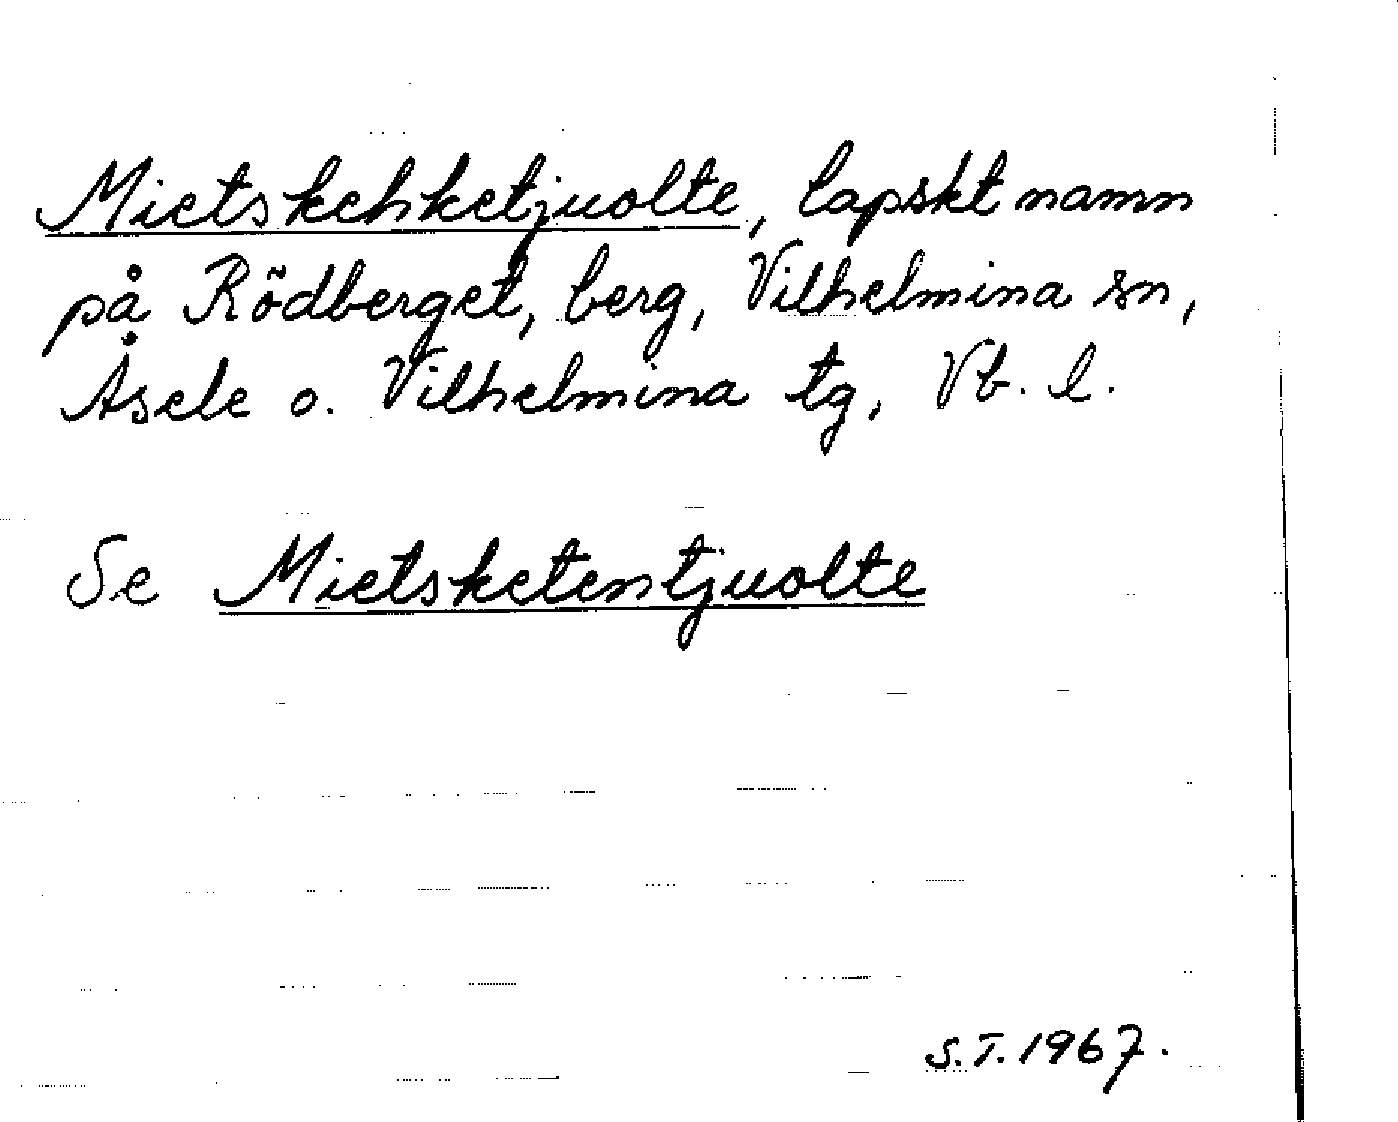 Mietskehketjuolte, lapskt namn
på Rödberget, berg, Vilhelmina sn,
Åsele o. Vilhelmina tg, Vb. l.
Se Mietsketentjuolte
S.T. 1967.